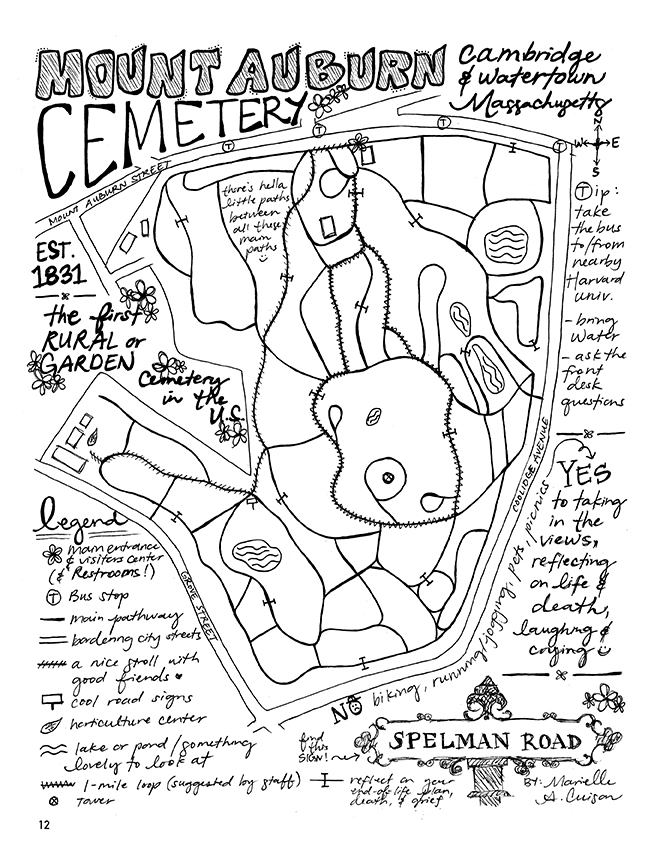 MOUNT AUBURN
CEMETERY
Cambridge
& Watertown
Massachusetts
N
W E
S
T T T T
MOUNT AUBURN STREET
there's hella
little paths
between
all these
main
paths
EST.
1831
the first
RURAL or
GARDEN
Cemetery
in the
U.S.
Tip:
take
the bus
to/from
nearby
Harvard
univ.
- bring
water
- ask the
front
desk
questions
COOLIDGE AVENUE
GROVE STREET
YES
to taking
in the
views,
reflecting
on life &
death,
laughing &
crying
NO biking, running/jogging, pets, picnics
legend
main entrance
& visitors center
(& Restrooms!)
T Bus stop
main pathway
bordering city streets
a nice stroll with
good friends
cool road signs
horticulture center
lake or pond/something
lovely to look at
1-mile loop (suggested by staff)
Tower
find
this
SIGN!
SPELMAN ROAD
reflect on your
end-of-life plan,
death, & grief
BY: Marielle
A. Cuison
12